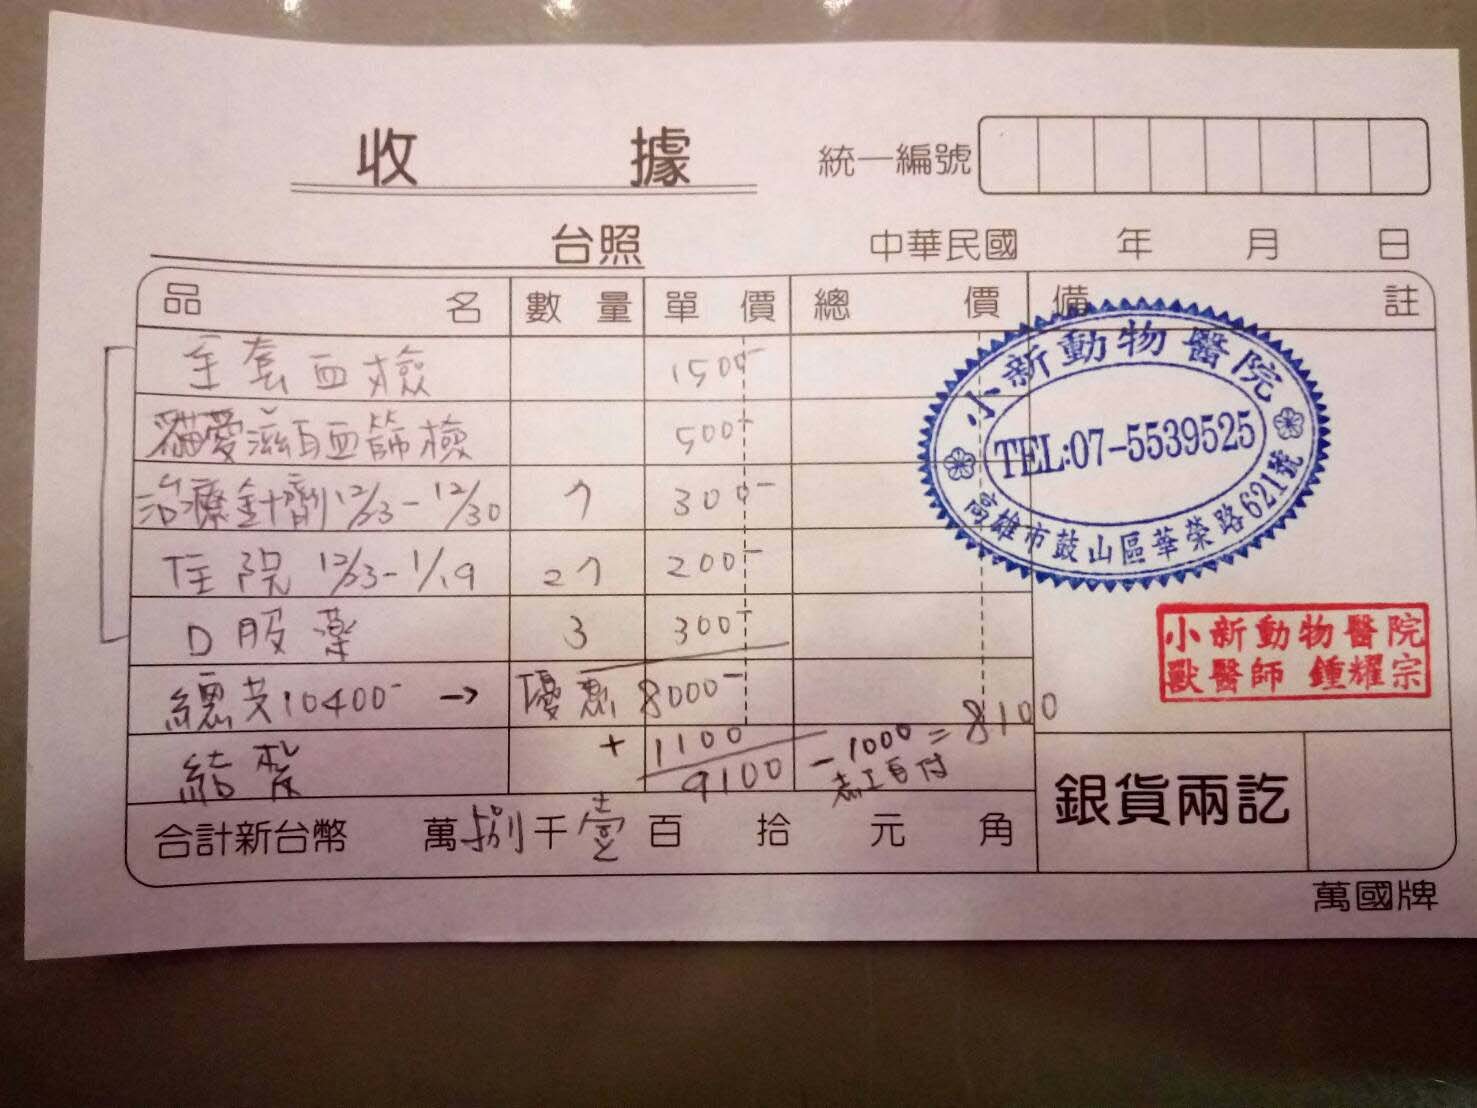 收據
統一編號
台照
中華民國 年 月 日
品名 數量 單價 總價 備註
全套血檢 1500-
貓愛滋白血篩檢 500-
治療針劑 12/23-12/30 7 300-
住院 12/23-1/19 27 200-
口服藥 3 300-
總共10400- → 優惠 8000-
結紮 + 1100
9100 -1000 = 8100
志工自付
合計新台幣 萬捌千壹百 拾 元 角
小新動物醫院
TEL:07-5539525
高雄市鼓山區華榮路621號
小新動物醫院
獸醫師 鍾耀宗
銀貨兩訖
萬國牌